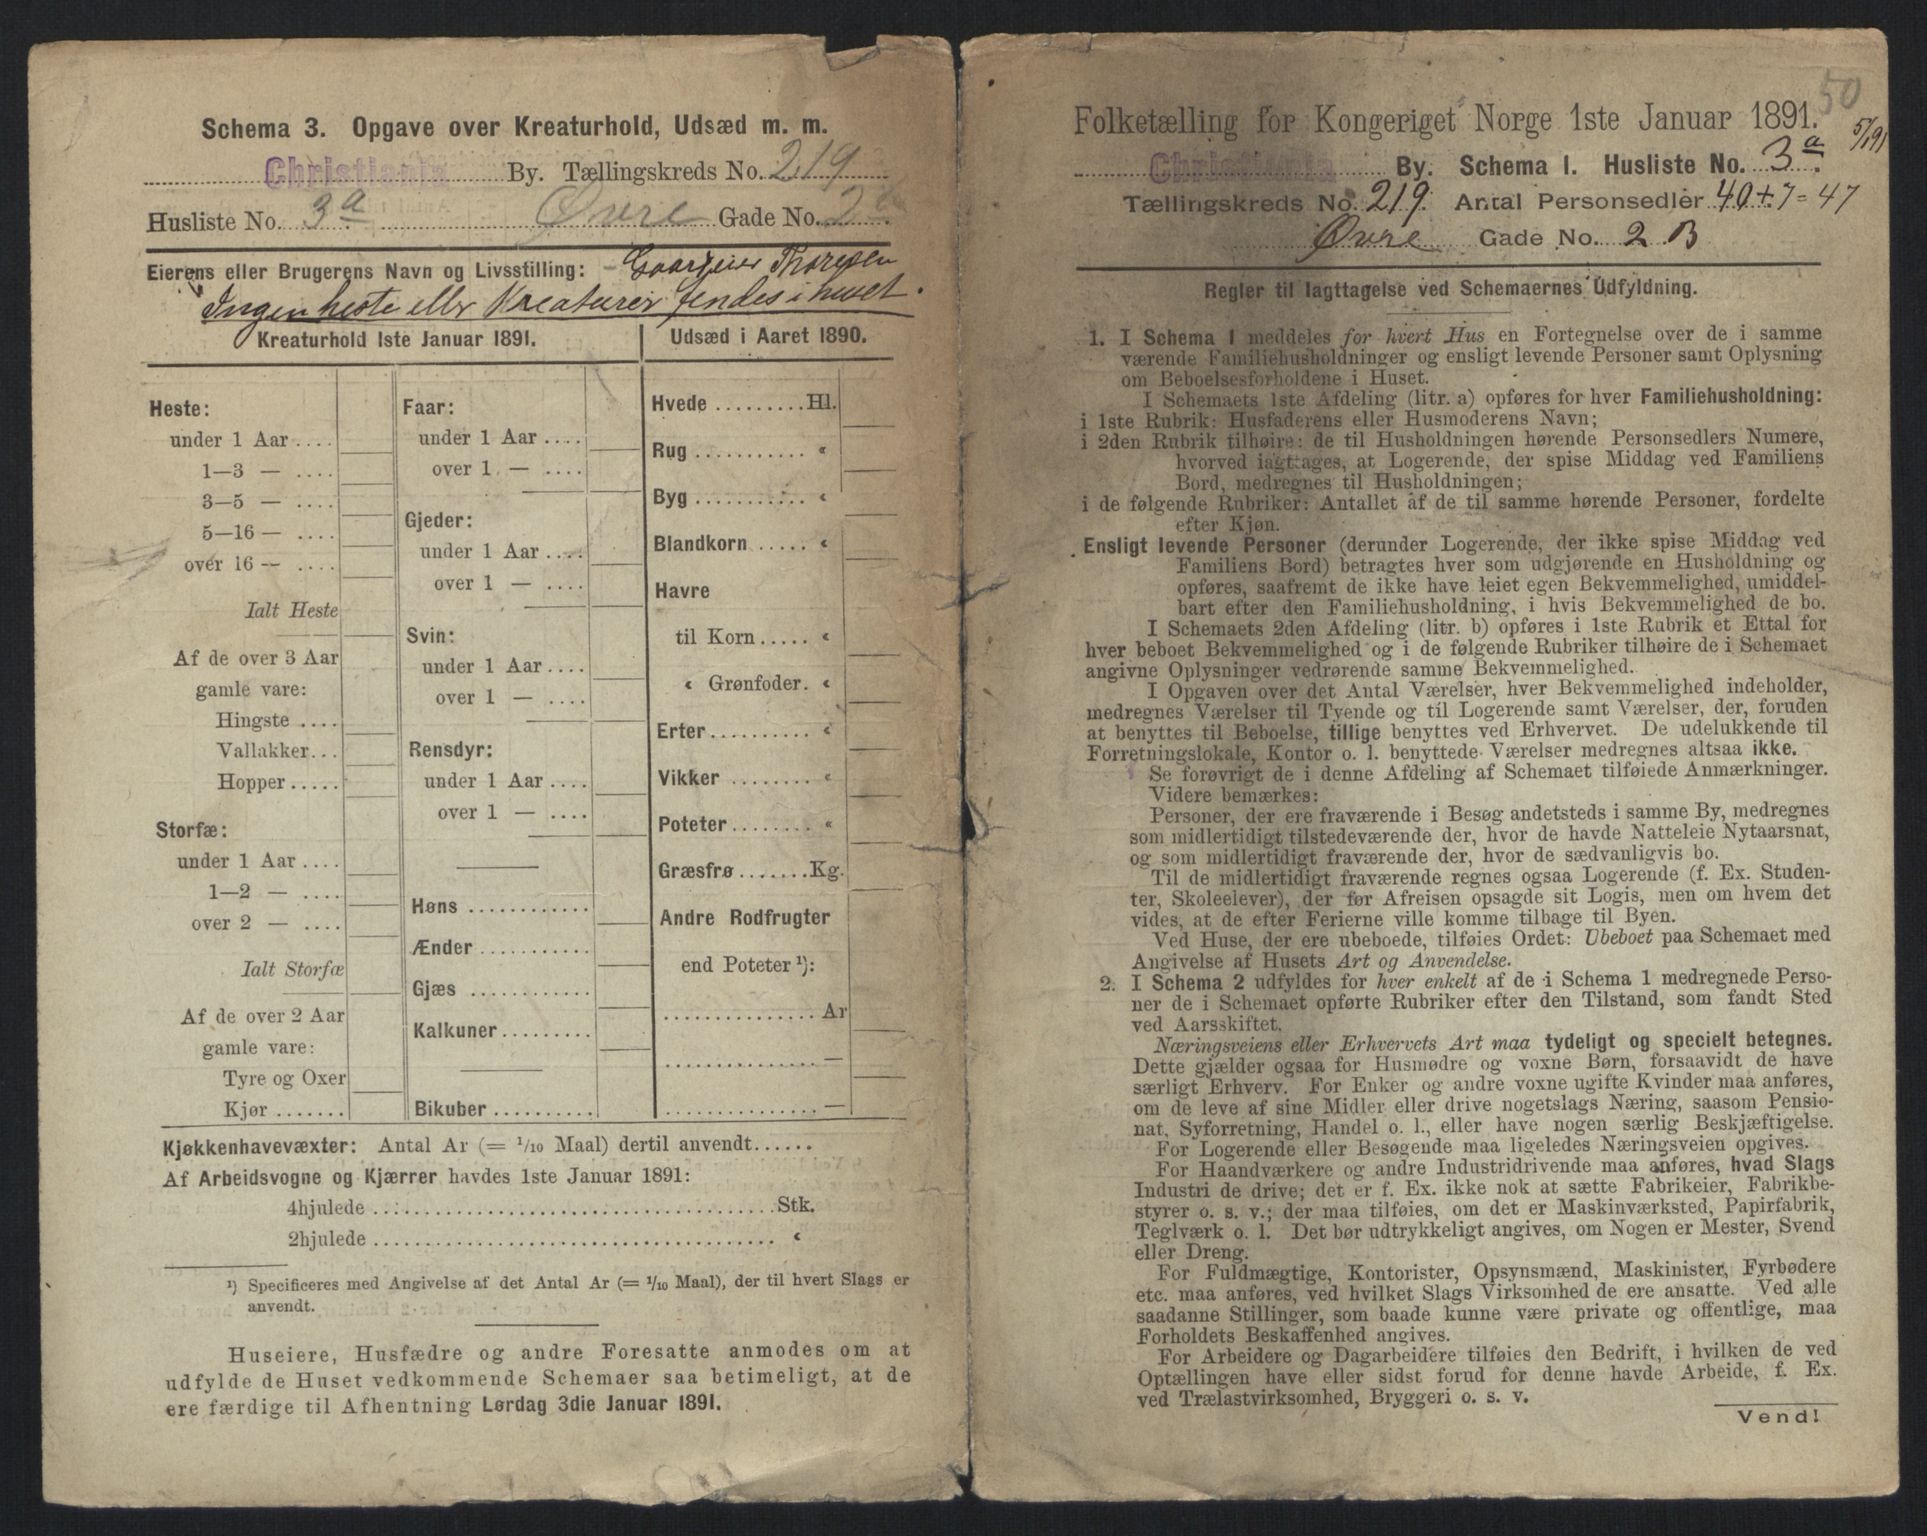 Schema 3. Opgave over Kreaturhold, Udsæd m. m.
Christiania By. Tællingskreds No. 219
Husliste No. 3a Øvre Gade No. 2
Eierens eller Brugerens Navn og Livsstilling: Thoresen
Ingen heste eller Kreaturer findes i huset.
Kreaturhold 1ste Januar 1891.
Heste:
under 1 Aar ....
1—3 — ....
3—5 — ....
5—16 — ....
over 16 — ....
Ialt Heste
Af de over 3 Aar
gamle vare:
Hingste ....
Vallakker...
Hopper .....
Storfæ:
under 1 Aar ....
1—2 — ....
over 2 — ....
Ialt Storfæ
Af de over 2 Aar
gamle vare:
Tyre og Oxer
Kjør .......
Faar:
under 1 Aar ....
over 1 — ....
Gjeder:
under 1 Aar ....
over 1 — ....
Svin:
under 1 Aar ....
over 1 — ....
Rensdyr:
under 1 Aar ....
over 1 — ....
Høns ............
Ænder ...........
Gjæs ............
Kalkuner .........
Bikuber ..........
Udsæd i Aaret 1890.
Hvede ......... Hl.
Rug ........... «
Byg ........... «
Blandkorn ..... «
Havre
til Korn ..... «
« Grønfoder. «
Erter .......... «
Vikker ........ «
Poteter ........ «
Græsfrø ....... Kg.
Andre Rodfrugter
end Poteter ¹):
............... Ar
............... —
............... —
Kjøkkenhavevæxter: Antal Ar (= 1/10 Maal) dertil anvendt ......
Af Arbeidsvogne og Kjærrer havdes 1ste Januar 1891:
4hjulede ........................................ Stk.
2hjulede ........................................ «
¹) Specificeres med Angivelse af det Antal Ar (= 1/10 Maal), der til hvert Slags er
anvendt.
Huseiere, Husfædre og andre Foresatte anmodes om at
udfylde de Huset vedkommende Schemaer saa betimeligt, at de
ere færdige til Afhentning Lørdag 3die Januar 1891.
50
Folketælling for Kongeriget Norge 1ste Januar 1891.
5/1 91
Christiania By. Schema I. Husliste No. 3a.
Tællingskreds No. 219. Antal Personsedler 40+7=47
Øvre Gade No. 2 B
Regler til Iagttagelse ved Schemaernes Udfyldning.
1. I Schema 1 meddeles for hvert Hus en Fortegnelse over de i samme
værende Familiehusholdninger og ensligt levende Personer samt Oplysning
om Beboelsesforholdene i Huset.
I Schemaets 1ste Afdeling (litr. a) opføres for hver Familiehusholdning:
i 1ste Rubrik: Husfaderens eller Husmoderens Navn;
i 2den Rubrik tilhøire: de til Husholdningen hørende Personsedlers Numere,
hvorved iagttages, at Logerende, der spise Middag ved Familiens
Bord, medregnes til Husholdningen;
i de følgende Rubriker: Antallet af de til samme hørende Personer, fordelte
efter Kjøn.
Ensligt levende Personer (derunder Logerende, der ikke spise Middag ved
Familiens Bord) betragtes hver som udgjørende en Husholdning og
opføres, saafremt de ikke have leiet egen Bekvemmelighed, umiddel-
bart efter den Familiehusholdning, i hvis Bekvemmelighed de bo.
I Schemaets 2den Afdeling (litr. b) opføres i 1ste Rubrik et Ettal for
hver beboet Bekvemmelighed og i de følgende Rubriker tilhøire de i Schemaet
angivne Oplysninger vedrørende samme Bekvemmelighed.
I Opgaven over det Antal Værelser, hver Bekvemmelighed indeholder,
medregnes Værelser til Tyende og til Logerende samt Værelser, der, foruden
at benyttes til Beboelse, tillige benyttes ved Erhvervet. De udelukkende til
Forretningslokale, Kontor o. l. benyttede Værelser medregnes altsaa ikke.
Se forøvrigt de i denne Afdeling af Schemaet tilføiede Anmærkninger.
Videre bemærkes:
Personer, der ere fraværende i Besøg andetsteds i samme By, medregnes
som midlertidigt tilstedeværende der, hvor de havde Natteleie Nytaarsnat,
og som midlertidigt fraværende der, hvor de sædvanligvis bo.
Til de midlertidigt fraværende regnes ogsaa Logerende (f. Ex. Studen-
ter, Skoleelever), der før Afreisen opsagde sit Logis, men om hvem det
vides, at de efter Ferierne ville komme tilbage til Byen.
Ved Huse, der ere ubeboede, tilføies Ordet: Ubeboet paa Schemaet med
Angivelse af Husets Art og Anvendelse.
2. I Schema 2 udfyldes for hver enkelt af de i Schema 1 medregnede Perso-
ner de i Schemaet opførte Rubriker efter den Tilstand, som fandt Sted
ved Aarsskiftet.
Næringsveiens eller Erhvervets Art maa tydeligt og specielt betegnes.
Dette gjælder ogsaa for Husmødre og voxne Børn, forsaavidt de have
særligt Erhverv. For Enker og andre voxne ugifte Kvinder maa anføres,
om de leve af sine Midler eller drive nogetslags Næring, saasom Pensio-
nat, Syforretning, Handel o. l., eller have nogen særlig Beskjæftigelse.
For Logerende eller Besøgende maa ligeledes Næringsveien opgives.
For Haandværkere og andre Industridrivende maa anføres, hvad Slags
Industri de drive; det er f. Ex. ikke nok at sætte Fabrikeier, Fabrikbe-
styrer o. s. v.; der maa tilføies, om det er Maskinværksted, Papirfabrik,
Teglværk o. l. Det bør udtrykkeligt angives, om Nogen er Mester, Svend
eller Dreng.
For Fuldmægtige, Kontorister, Opsynsmænd, Maskinister, Fyrbødere
etc. maa anføres, ved hvilket Slags Virksomhed de ere ansatte. Ved alle
saadanne Stillinger, som baade kunne være private og offentlige, maa
Forholdets Beskaffenhed angives.
For Arbeidere og Dagarbeidere tilføies den Bedrift, i hvilken de ved
Optællingen have eller sidst forud for denne havde Arbeide, f. Ex.
ved Trælastvirksomhed, Bryggeri o. s. v.
Vend!